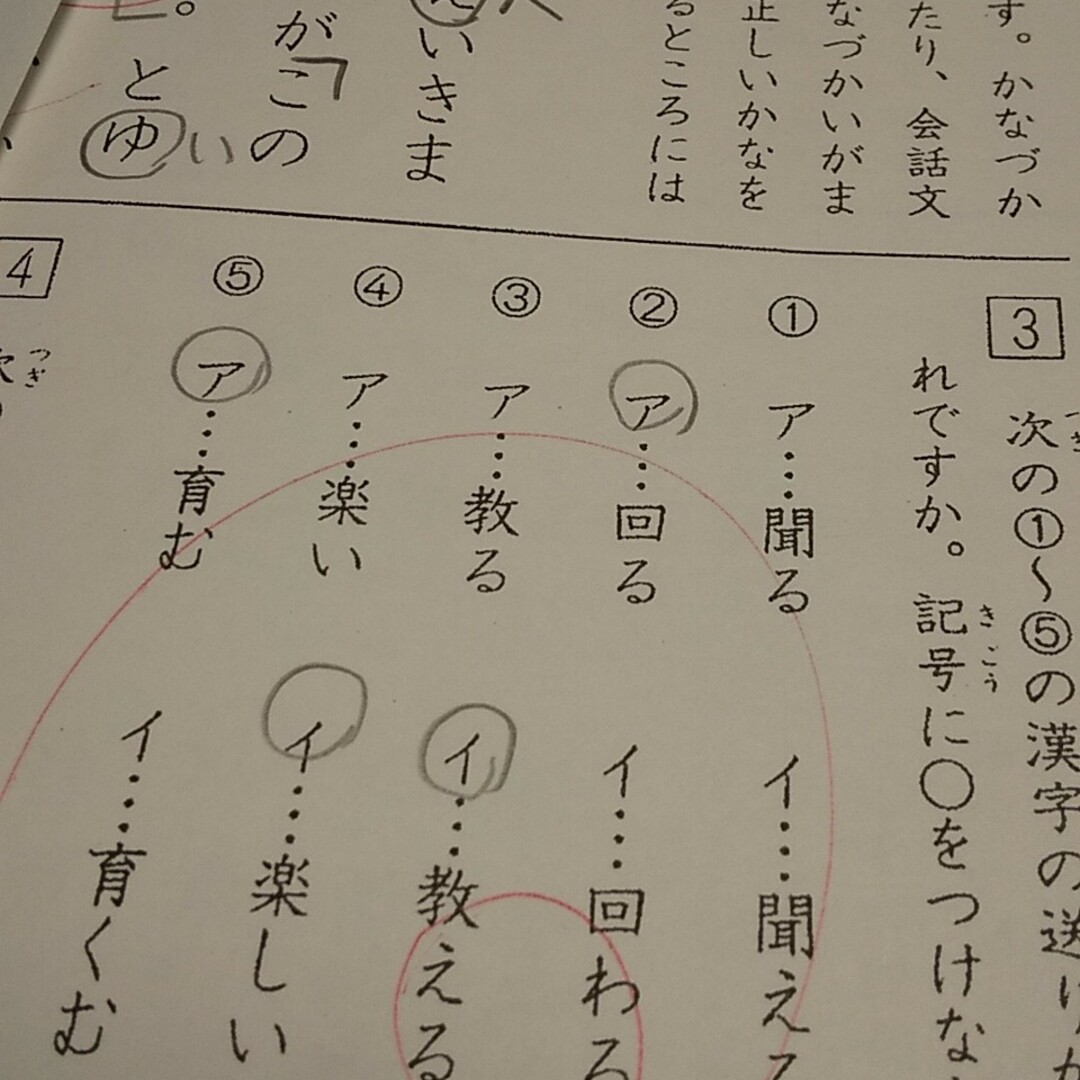 す。かなづか
たり、会話文
なづかいがま
正しいかなを
るところには
いきま
がこの
。とゆい
3
次の①～⑤の漢字の送
つぎ
れですか。記号に○をつけな
きごう
① ア…聞る イ…聞え
② ア…回る イ…回わる
③ ア…教る イ…教える
④ ア…楽い イ…楽しい
⑤ ア…育む イ…育くむ
4
つぎ